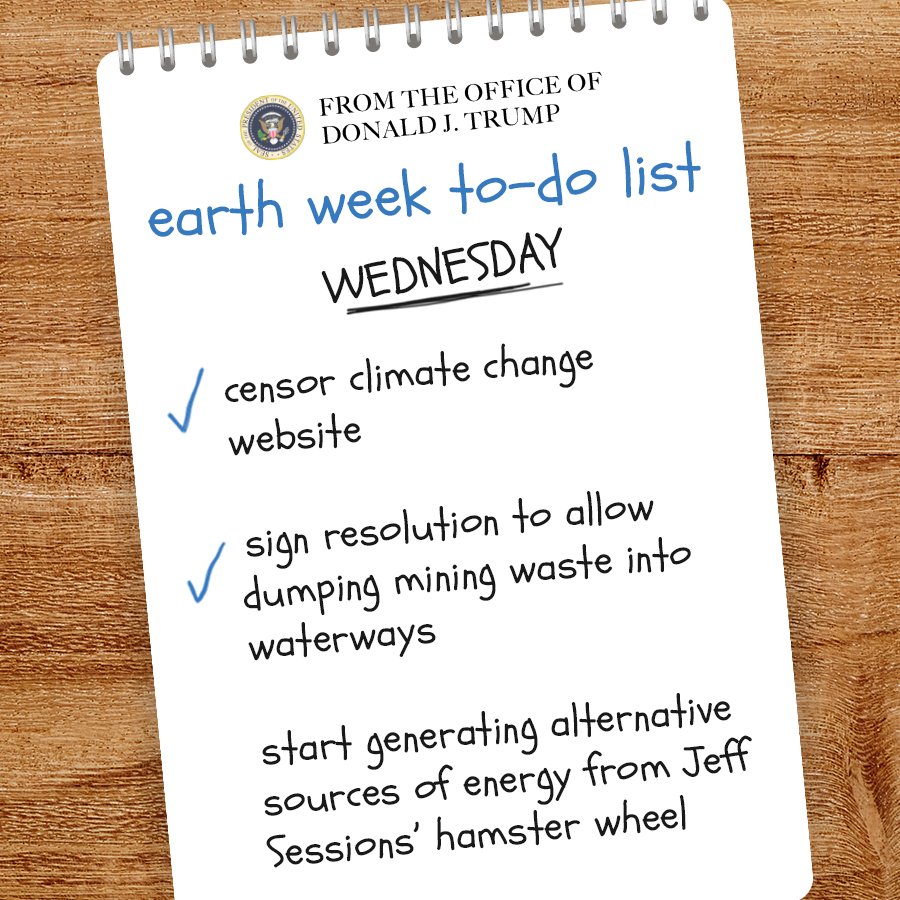 FROM THE OFFICE OF
DONALD J. TRUMP
earth week to-do list
WEDNESDAY
censor climate change
website
sign resolution to allow
dumping mining waste into
waterways
start generating alternative
sources of energy from Jeff
Sessions' hamster wheel